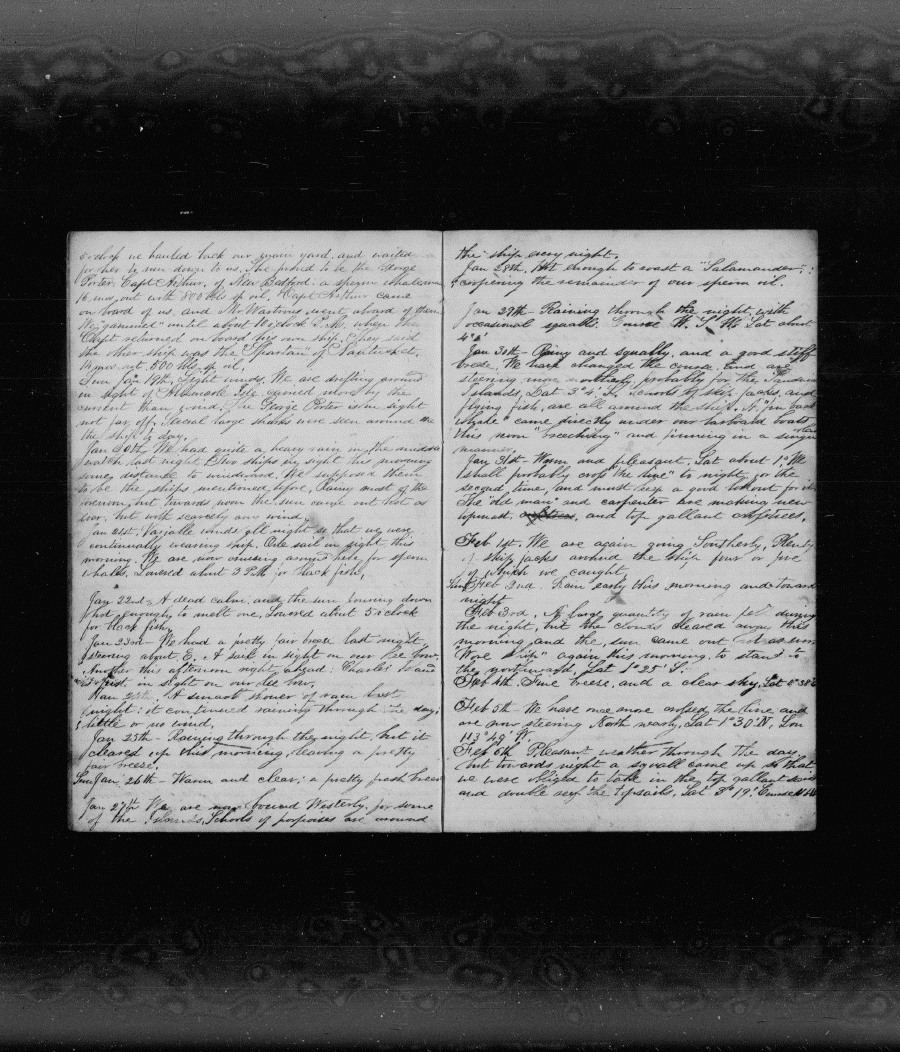 o'clock we hauled back our main yard, and waited
for her to run down to us. She proved to be the George
Porter, Capt Arthur, of New Bedford: a sperm whaleman
16 mos. out with 800 bbls sp oil. Capt Arthur came
on board of us, and Mr Wastrous went aboard of them.
We "gammed" until about 10 o'clock P.M. when the
Capt returned on board his own ship. They said
the other ship was the Spartan of Nantucket,
14 mos. out. 500 bbls sp oil.
Sun Jan 19th, Light winds. We are drifting around
in sight of Albemarle Isle carried more by the
current than wind. The George Porter is in sight
not far off. Several large sharks were seen around
the ship to day.
Jan 20th, We had quite a heavy rain in the middle
watch last night. Two ships in sight this morning
some distance to windward. We suppose them
to be the ships mentioned above. Rainy most of the
forenoon, but towards noon the sun came out hot as
ever, but with scarcely any wind.
Jan 21st. Variable winds all night so that we were
continually wearing ship. One sail in sight this
morning. We are now cruising around here for sperm
whales. Lowered about 3 P.M. for black fish.
Jan 22nd. A dead calm, and the sun coming down
hot enough to melt one. Lowered about 5 o'clock
for black fish.
Jan 23rd - We had a pretty fair breeze last night.
Steering about E. A sail in sight on our lee bow.
Another this afternoon right ahead. Charles Is and
in sight on our lee bow.
Jan 24th. A smart shower of rain last
night: it continued raining through the day;
little or no wind.
Jan 25th - Raining through the night, but it
cleared up this morning, leaving a pretty
fair breeze.
Sun Jan. 26th - Warm and clear; a pretty fresh breeze
Jan 27th We are now bound Westerly, for some
of the Islands. Schools of porpoises are around
the ship every night.
Jan 28th. Hot enough to roast a "Salamander".
Coopering the remainder of our sperm oil.
Jan 29th - Raining through the night, with
occasional squalls. Course W. S. W. Lat about
4° S
Jan 30th - Rainy and squally, and a good stiff
breeze. We have changed the course, and are
steering more northerly, probably for the Sandwich
Islands. Lat 3° 4' S. Schools of skip jacks, and
flying fish, are all around the ship. A "fin back
whale" came directly under our larboard boats
this noon "breeching" and finning in a singular
manner.
Jan 31st - Warm and pleasant. Lat about 1° We
shall probably crop "the line" to night, for the
second time, and must keep a good lookout for it.
The "old man" and carpenter are making new
topmast, and top gallant crosstrees.
Feb 1st. We are again going Southerly. Plenty
of skip jacks around the ship four or five
of which we caught.
Sun Feb 2nd. Rain early this morning and toward
night
Feb 3rd. A large quantity of rain fell during
the night, but the clouds cleared away this
morning, and the sun came out it as ever.
"Wore ship" again this morning, to stand to
the northward. Lat 1° 25' S.
Feb 4th. Fine breeze, and a clear sky. Lat 0° 38'
Feb 5th - We have once more crossed the line and
are now steering North nearly, Lat 1° 30' N. Lon
113° 49' W.
Feb 6th. Pleasant weather through the day
but towards night a squall came up so that
we were obliged to take in the top gallant sails
and double reef the topsails. Lat 3° 19'. Course